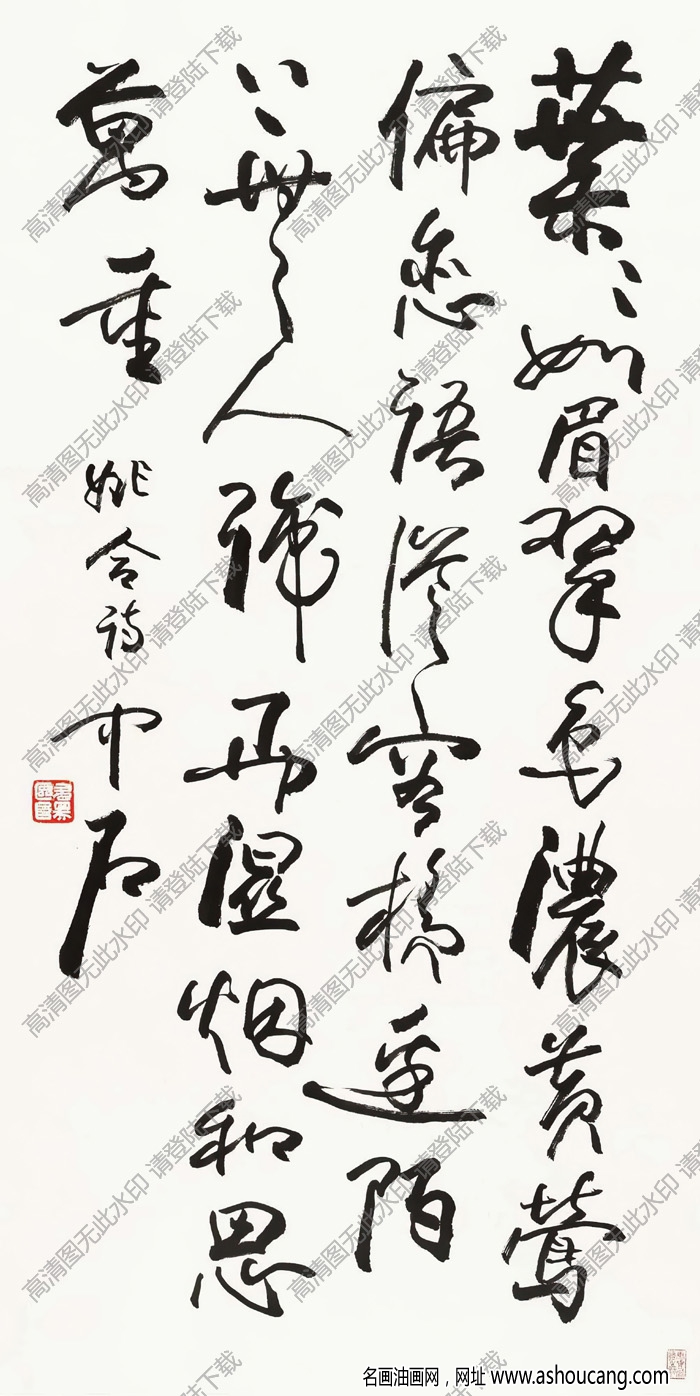 葉〻如眉翠色濃黄鶯
偏恋語從容橋邊陌
上無人識雨濕烟和思
萬重
姚合詩
中石
高清图无此水印 请登陆下载
名画油画网，网址 www.ashoucang.com